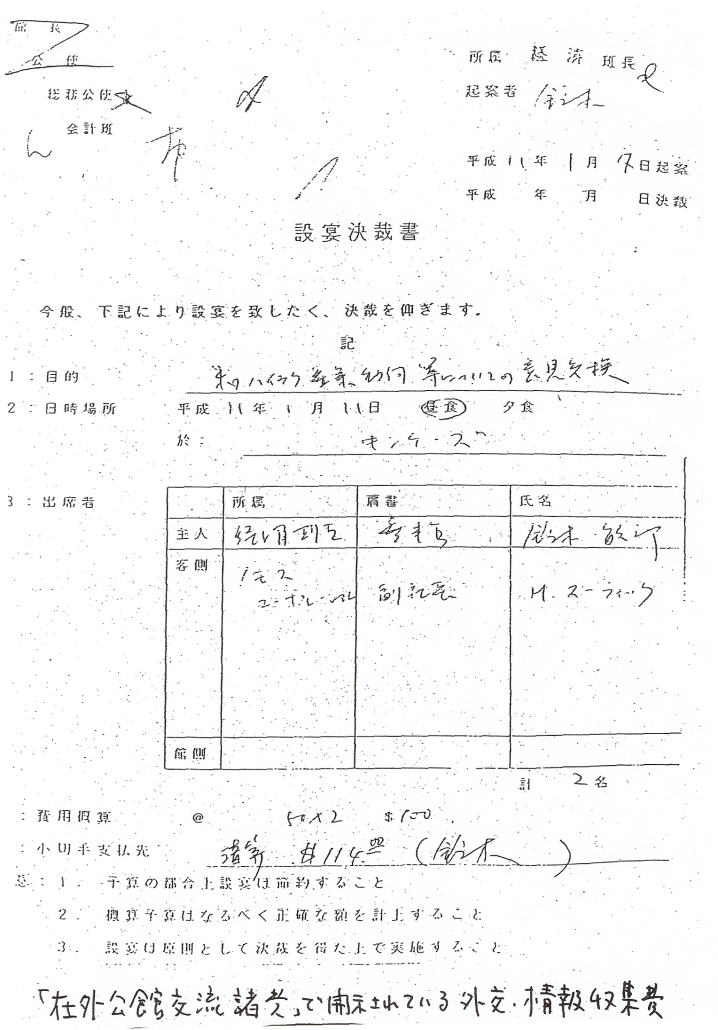 館長
公使
総務公使
会計班
所属 経済 班長
起案者 鈴木
平成 11年 1月 7日起案
平成 年 月 日決裁
設宴決裁書
今般、下記により設宴を致したく、決裁を仰ぎます。
記
1：目的 米ハイテク産業動向等についての意見交換
2：日時場所 平成 11年 1月 11日 昼食 夕食
於： キンケーズ
3：出席者
所属 肩書 氏名
主人 経済班 参事官 鈴木 敏
客側
コーポレーション 副社長 H. スーティック
館側
計 2名
：費用概算 @ 50×2 $100.
：小切手支払先 清算 $114.00 (鈴木)
：1. 予算の都合上設宴は節約すること
2. 概算予算はなるべく正確な額を計上すること
3. 設宴は原則として決裁を得た上で実施すること
「在外公館交流諸費」で開示されている外交・情報収集費